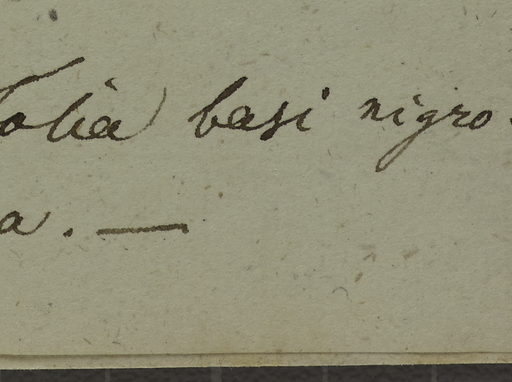 folia basi nigro-
a. —